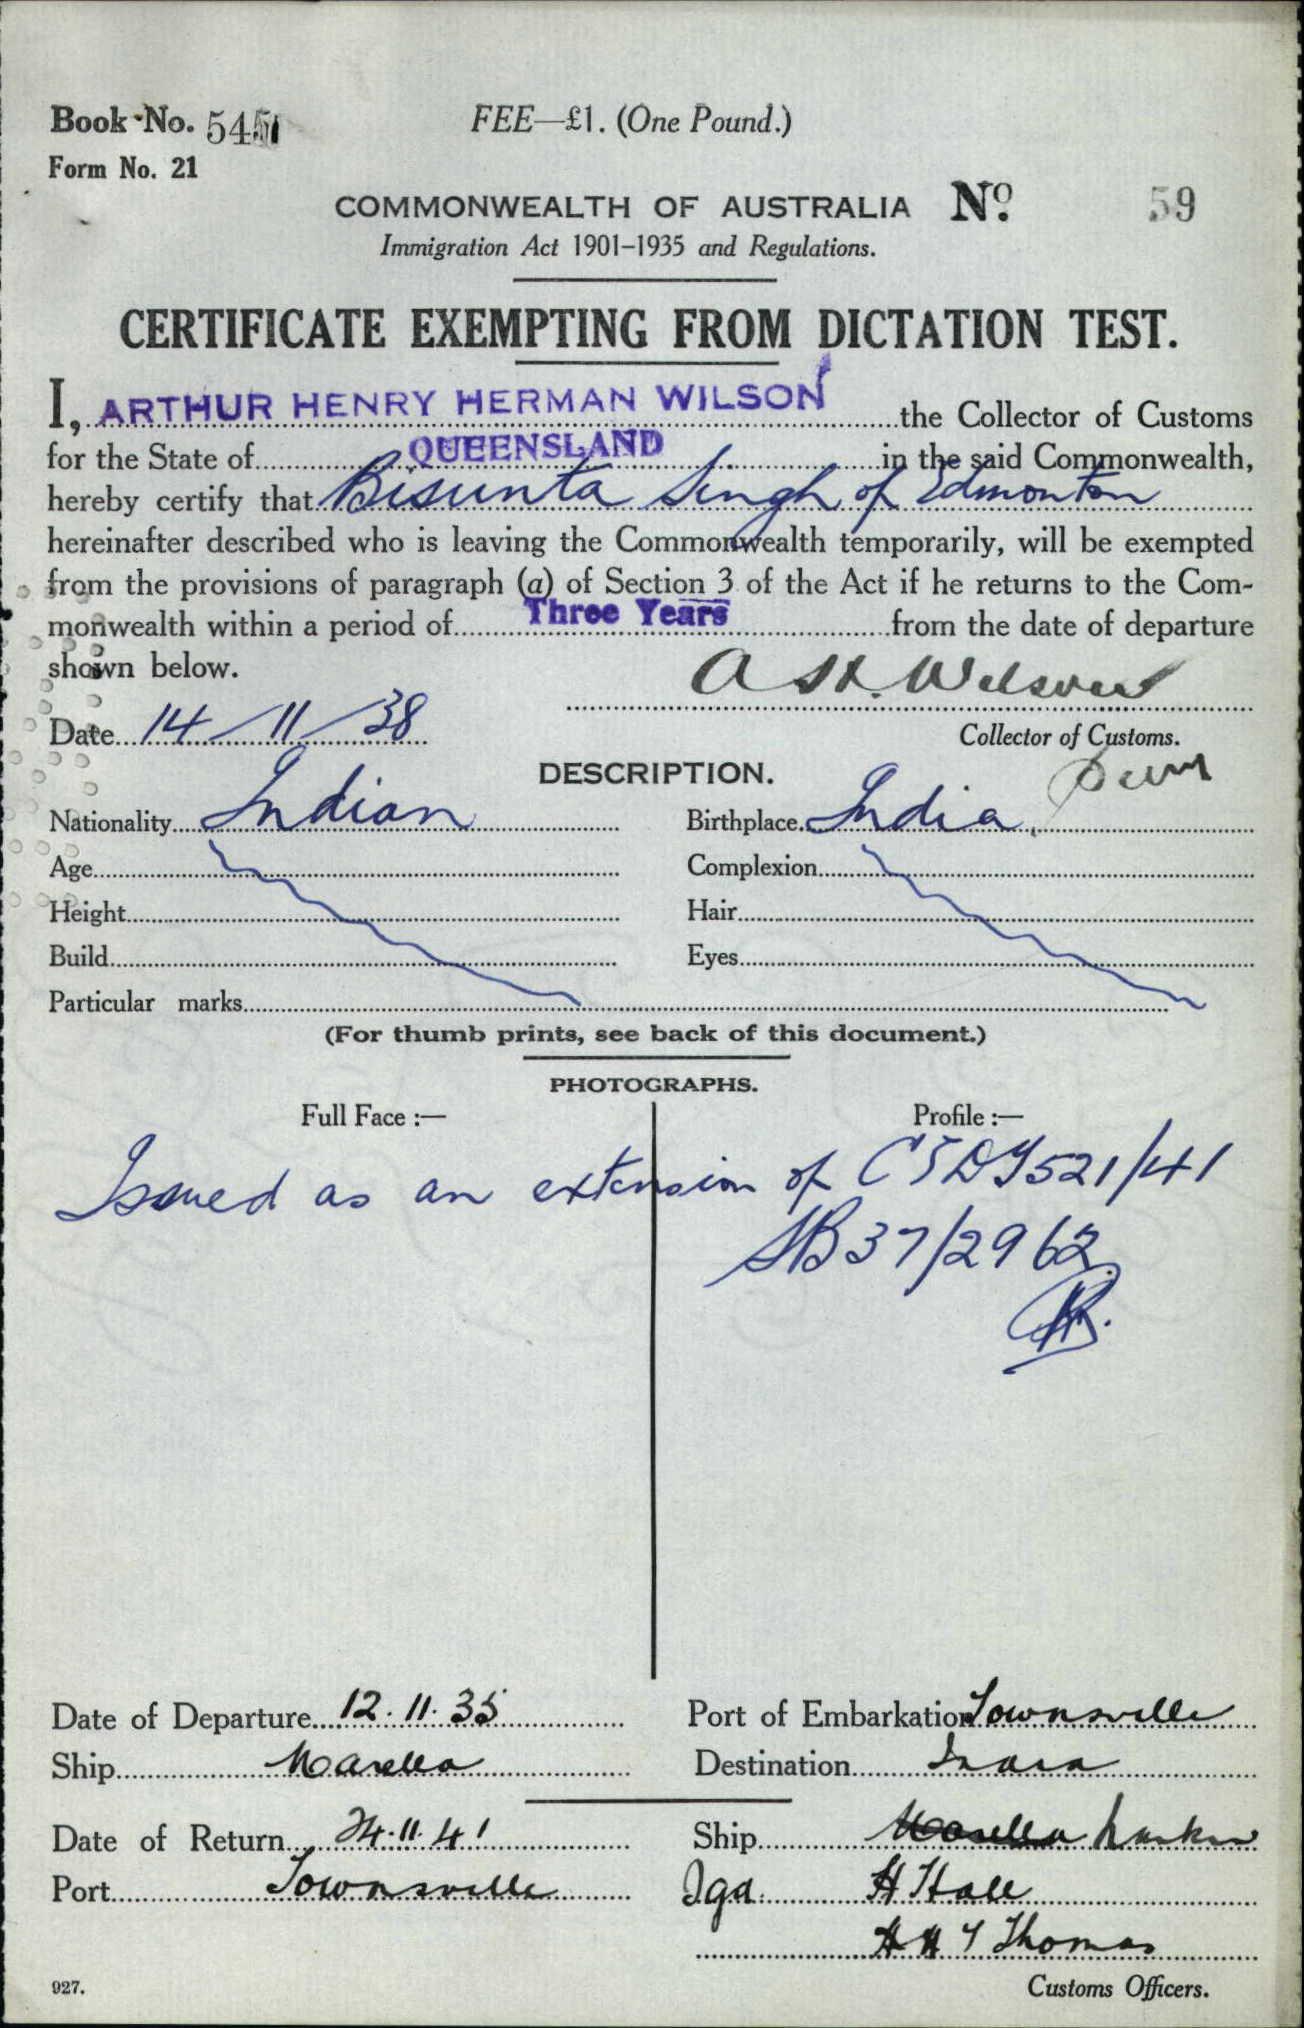 Book No. 545
FEE—£1. (One Pound.)
Form No. 21
COMMONWEALTH OF AUSTRALIA No. 59
Immigration Act 1901-1935 and Regulations.
CERTIFICATE EXEMPTING FROM DICTATION TEST.
I, ARTHUR HENRY HERMAN WILSON the Collector of Customs
for the State of QUEENSLAND in the said Commonwealth,
hereby certify that Bisunta Singh of Edmonton
hereinafter described who is leaving the Commonwealth temporarily, will be exempted
from the provisions of paragraph (a) of Section 3 of the Act if he returns to the Com-
monwealth within a period of Three Years from the date of departure
shown below.
A H H. Wilson
Date 14/11/38
Collector of Customs.
DESCRIPTION.
Nationality Indian Birthplace India
Age Complexion
Height Hair
Build Eyes
Particular marks
(For thumb prints, see back of this document.)
PHOTOGRAPHS.
Full Face :— Profile :—
Issued as an extension of CEDT 521/41
SB 37/2962
Date of Departure 12.11.35 Port of Embarkation Townsville
Ship Marella Destination India
Date of Return 24.11.41 Ship Marella
Port Townsville Sgd H Hall
H H Y Thomas
927. Customs Officers.